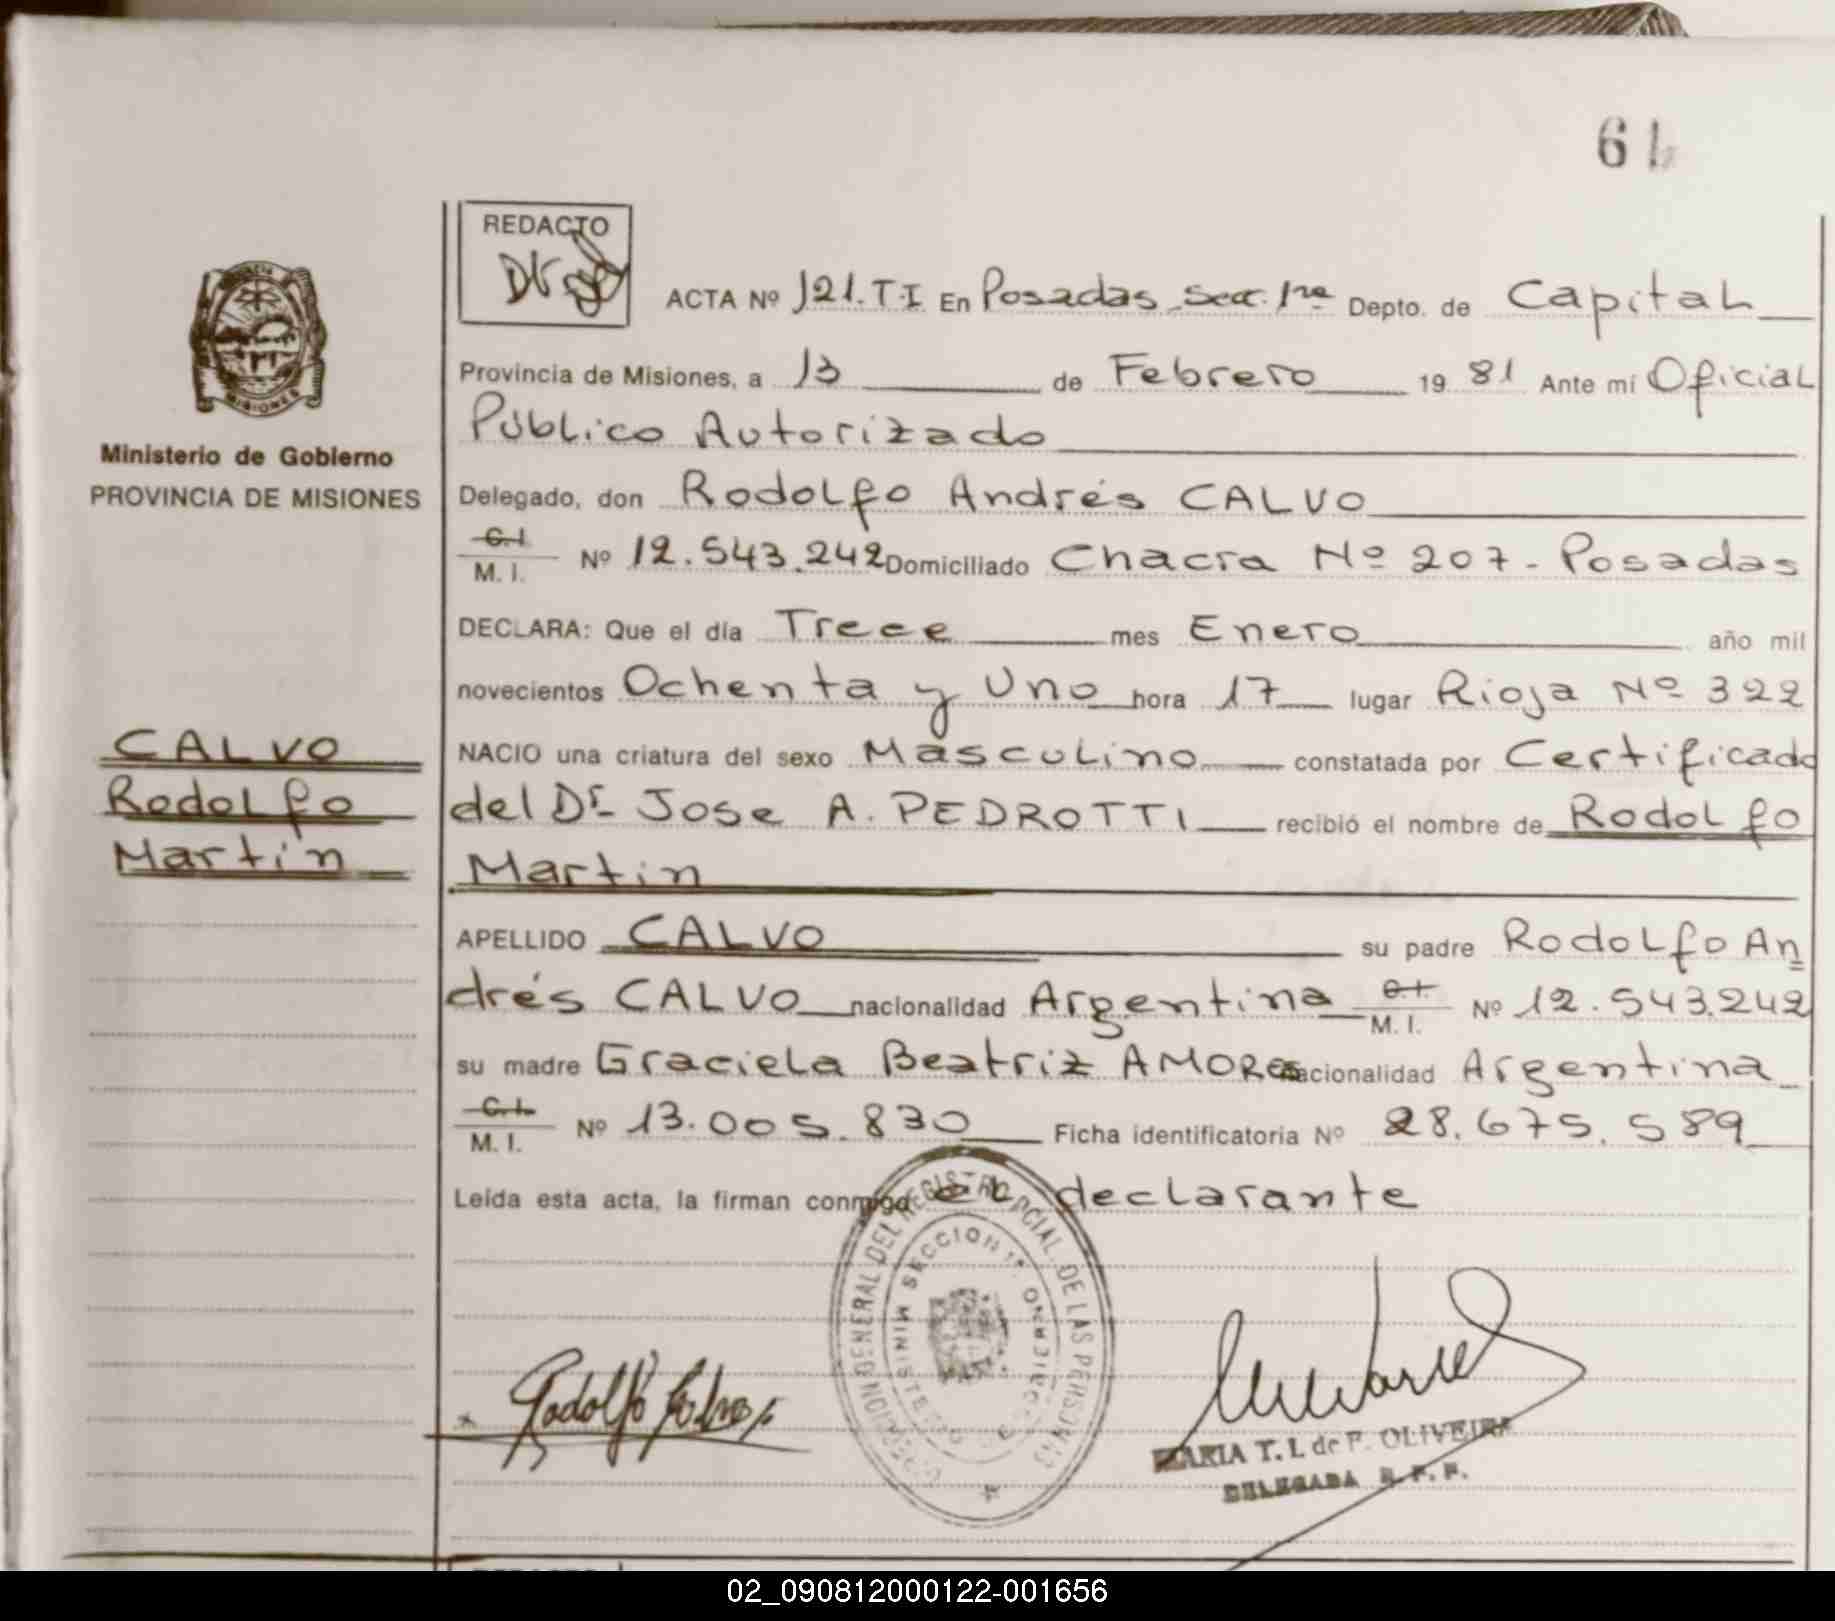 61
REDACTO
ACTA Nº 121.T.I En Posadas Secc. 1ra Depto. de Capital
Provincia de Misiones, a 13 de Febrero 19 81 Ante mí Oficial
Público Autorizado
Ministerio de Gobierno
PROVINCIA DE MISIONES
Delegado, don Rodolfo Andrés CALVO
C.I.
M. I. Nº 12.543.242 Domiciliado Chacra Nº 207 - Posadas
DECLARA: Que el día Trece mes Enero año mil
novecientos Ochenta y Uno hora 17 lugar Rioja Nº 322
NACIO una criatura del sexo Masculino constatada por Certificado
del Dr. Jose A. PEDROTTI recibió el nombre de Rodolfo
Martín
CALVO
Rodolfo
Martín
APELLIDO CALVO su padre Rodolfo An
drés CALVO nacionalidad Argentina C.I.
M. I. Nº 12.543.242
su madre Graciela Beatriz AMORES nacionalidad Argentina
C.I.
M. I. Nº 13.005.830 Ficha identificatoria Nº 28.675.589
Leída esta acta, la firman conmigo el declarante
DIRECCION GENERAL DEL REGISTRO PCIAL. DE LAS PERSONAS
MINISTERIO DE GOBIERNO
SECCION 1a.
MARIA T. I. de P. OLIVEIRA
DELEGADA R. P. P.
02_090812000122-001656